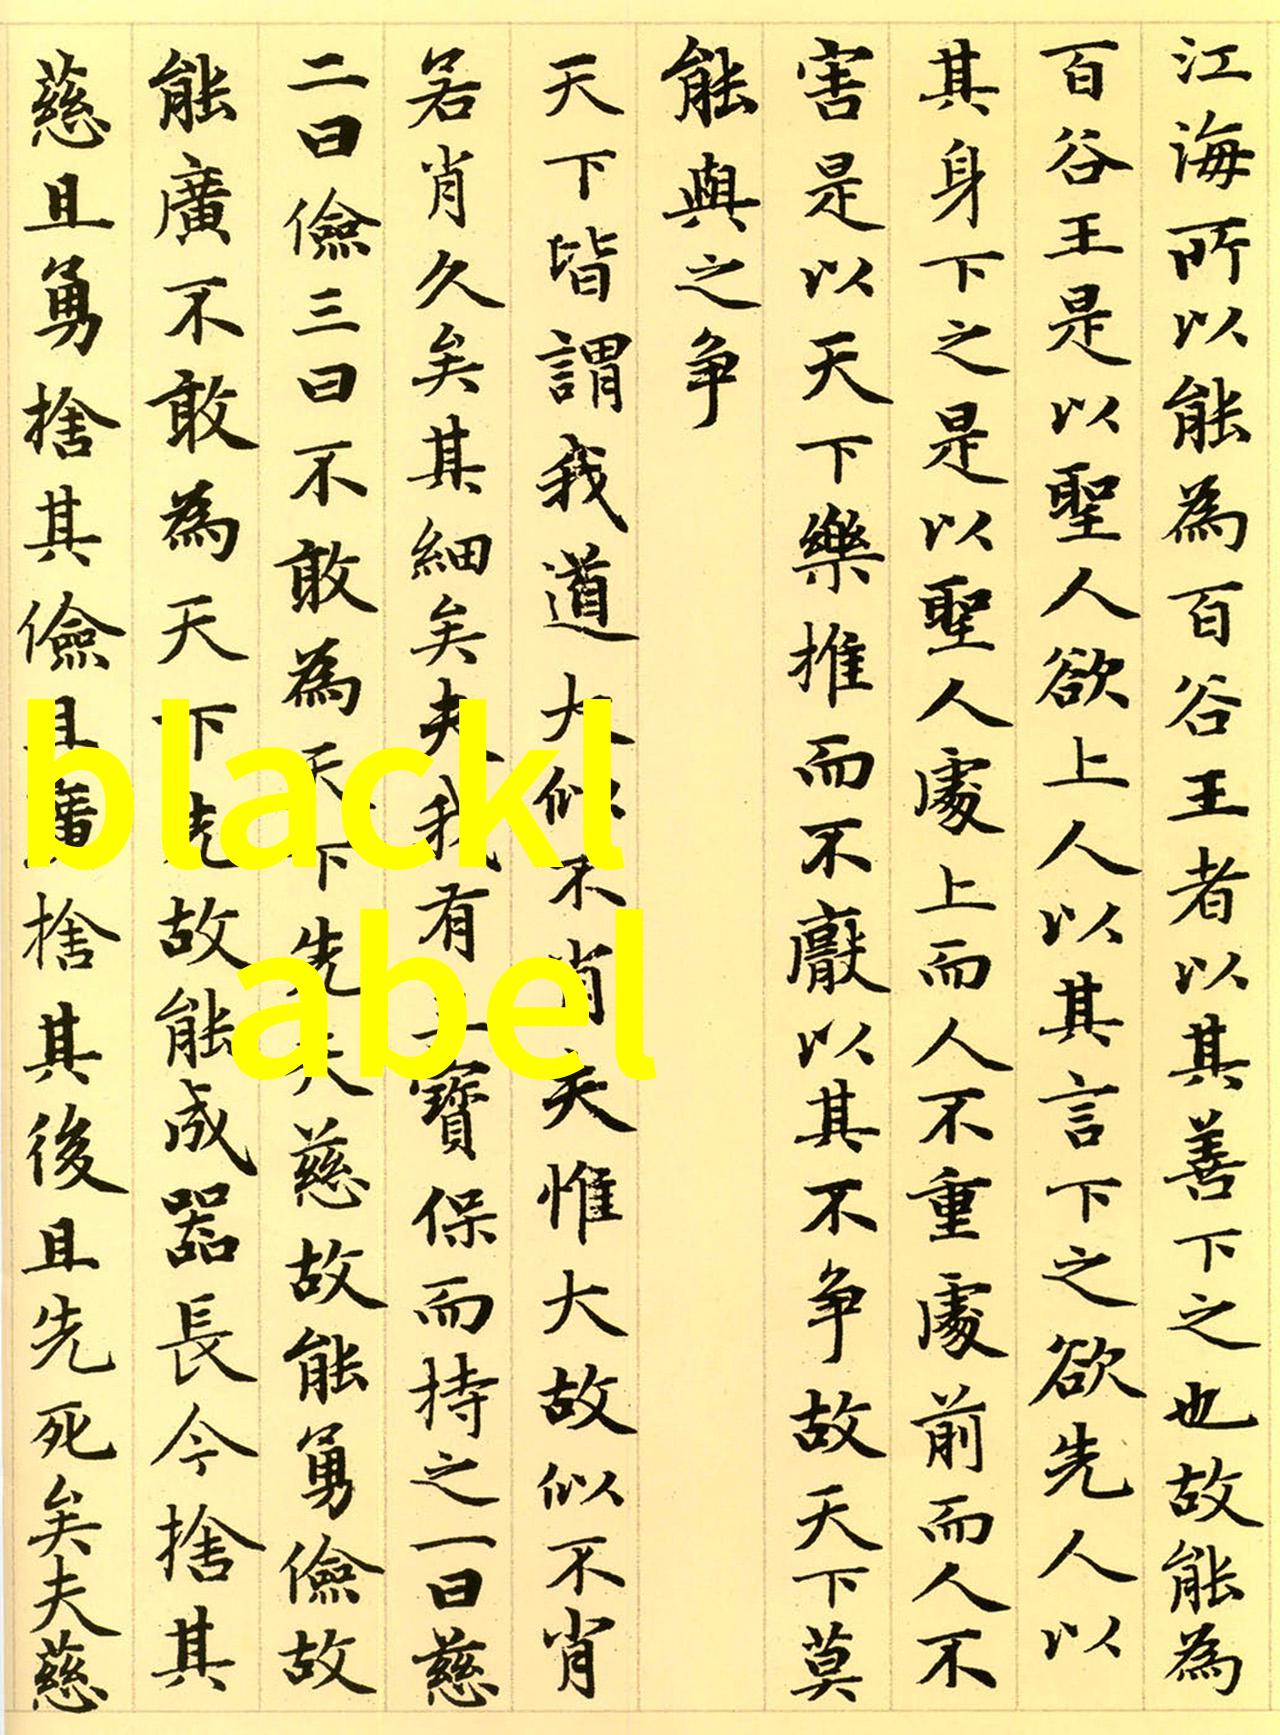 江海所以能為百谷王者以其善下之也故能為
百谷王是以聖人欲上人以其言下之欲先人以
其身下之是以聖人處上而人不重處前而人不
害是以天下樂推而不厭以其不争故天下莫
能與之争
天下皆謂我道大似不肖夫惟大故似不肖
若肖久矣其細矣夫我有三寶保而持之一曰慈
二曰儉三曰不敢為天下先夫慈故能勇儉故
能廣不敢為天下先故能成器長今捨其
慈且勇捨其儉且廣捨其後且先死矣夫慈
blackl
abel